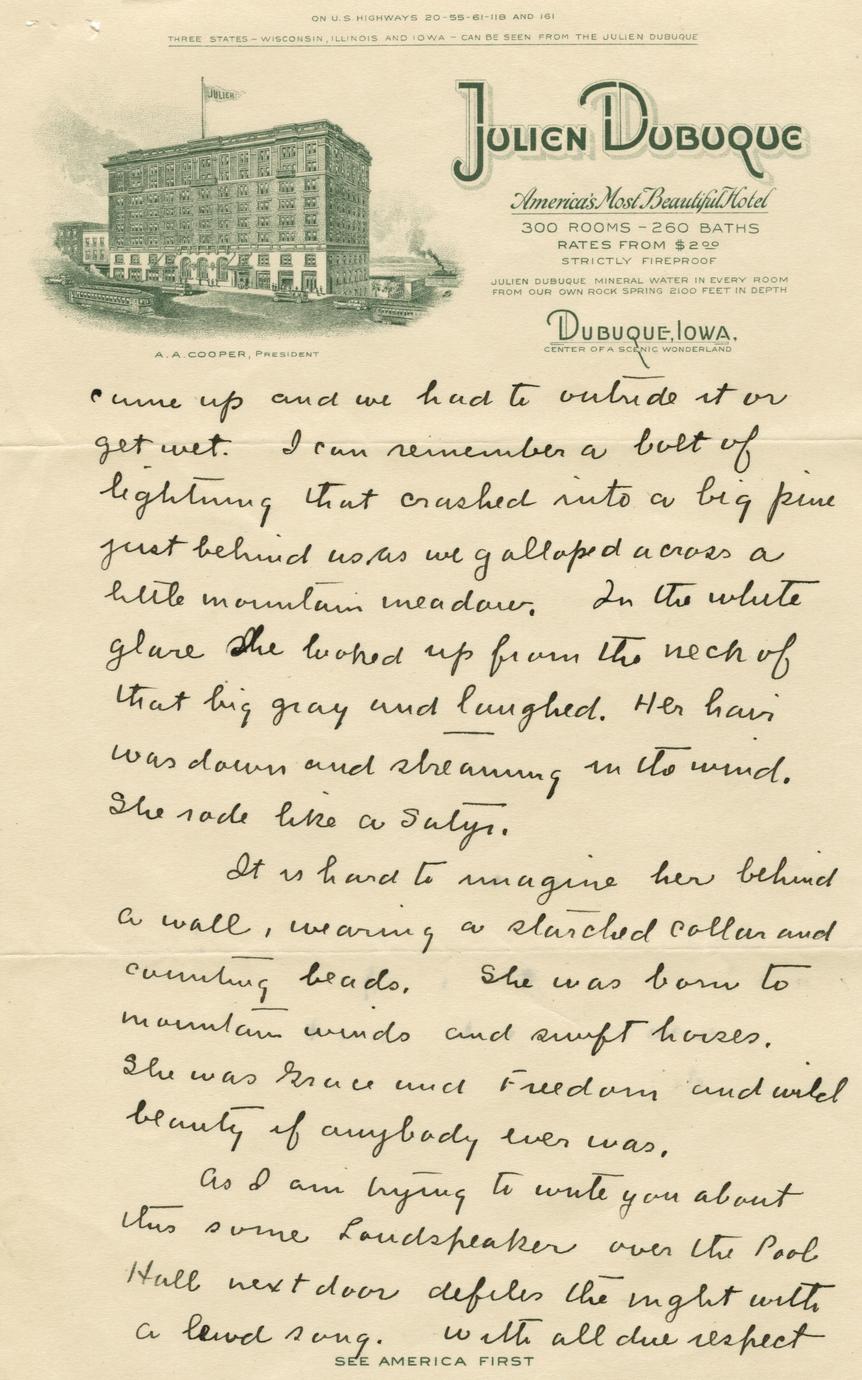 ON U.S. HIGHWAYS 20-55-61-118 AND 161
THREE STATES – WISCONSIN, ILLINOIS AND IOWA – CAN BE SEEN FROM THE JULIEN DUBUQUE
JULIEN
JULIEN DUBUQUE
America's Most Beautiful Hotel
300 ROOMS – 260 BATHS
RATES FROM $2.00
STRICTLY FIREPROOF
JULIEN DUBUQUE MINERAL WATER IN EVERY ROOM
FROM OUR OWN ROCK SPRING 2100 FEET IN DEPTH
DUBUQUE, IOWA.
CENTER OF A SCENIC WONDERLAND
A. A. COOPER, PRESIDENT
came up and we had to outride it or
get wet. I can remember a bolt of
lightning that crashed into a big pine
just behind us, as we galloped across a
little mountain meadow. In the white
glare She looked up from the neck of
that big gray and laughed. Her hair
was down and streaming in the wind.
She rode like a Satyr.
It is hard to imagine her behind
a wall, wearing a starched collar and
counting beads. She was born to
mountain winds and swift horses.
She was Grace and Freedom and wild
beauty if anybody ever was.
As I am trying to write you about
this some Loudspeaker over the Pool
Hall next door defiles the night with
a lewd song. With all due respect
SEE AMERICA FIRST